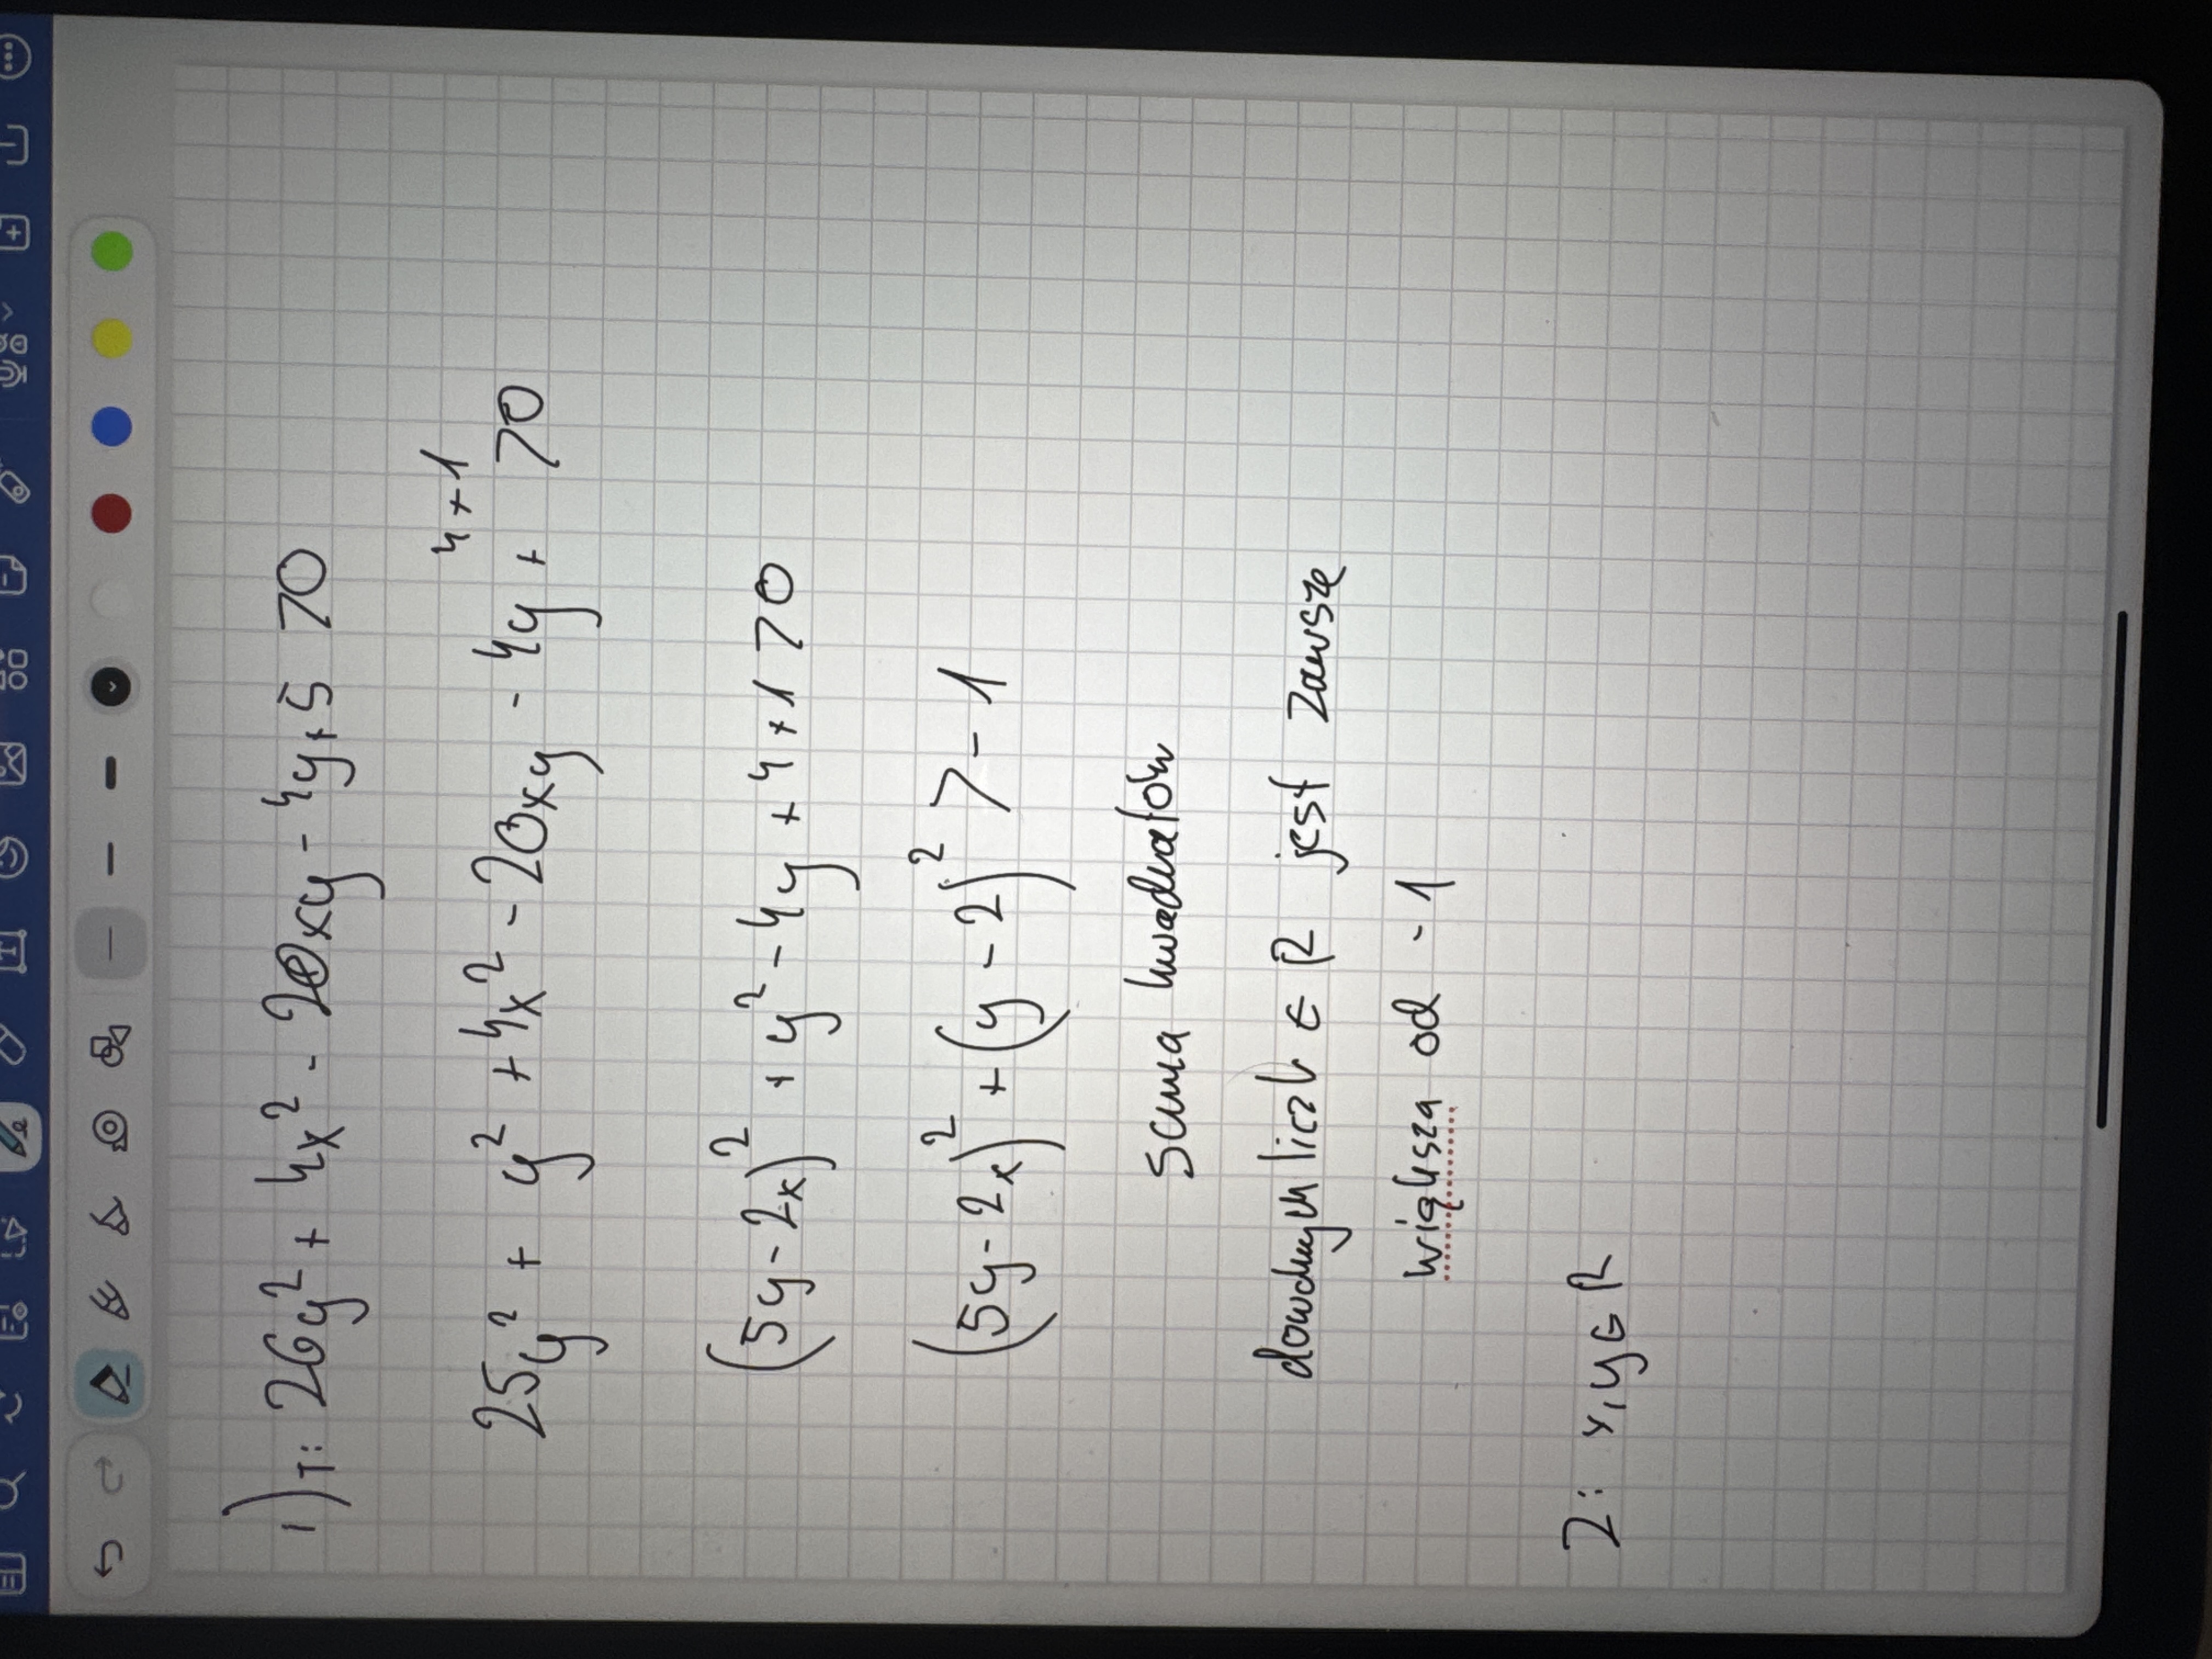 1) T: 26y² + 4x² - 20xy - 4y + 5 > 0
4+1
25y² + y² + 4x² - 20xy - 4y + > 0
(5y - 2x)² + y² - 4y + 4 + 1 > 0
(5y - 2x)² + (y - 2)² > -1
suma kwadratów
dowolnych liczb ∈ R jest zawsze
większa od -1
Z: x, y ∈ R